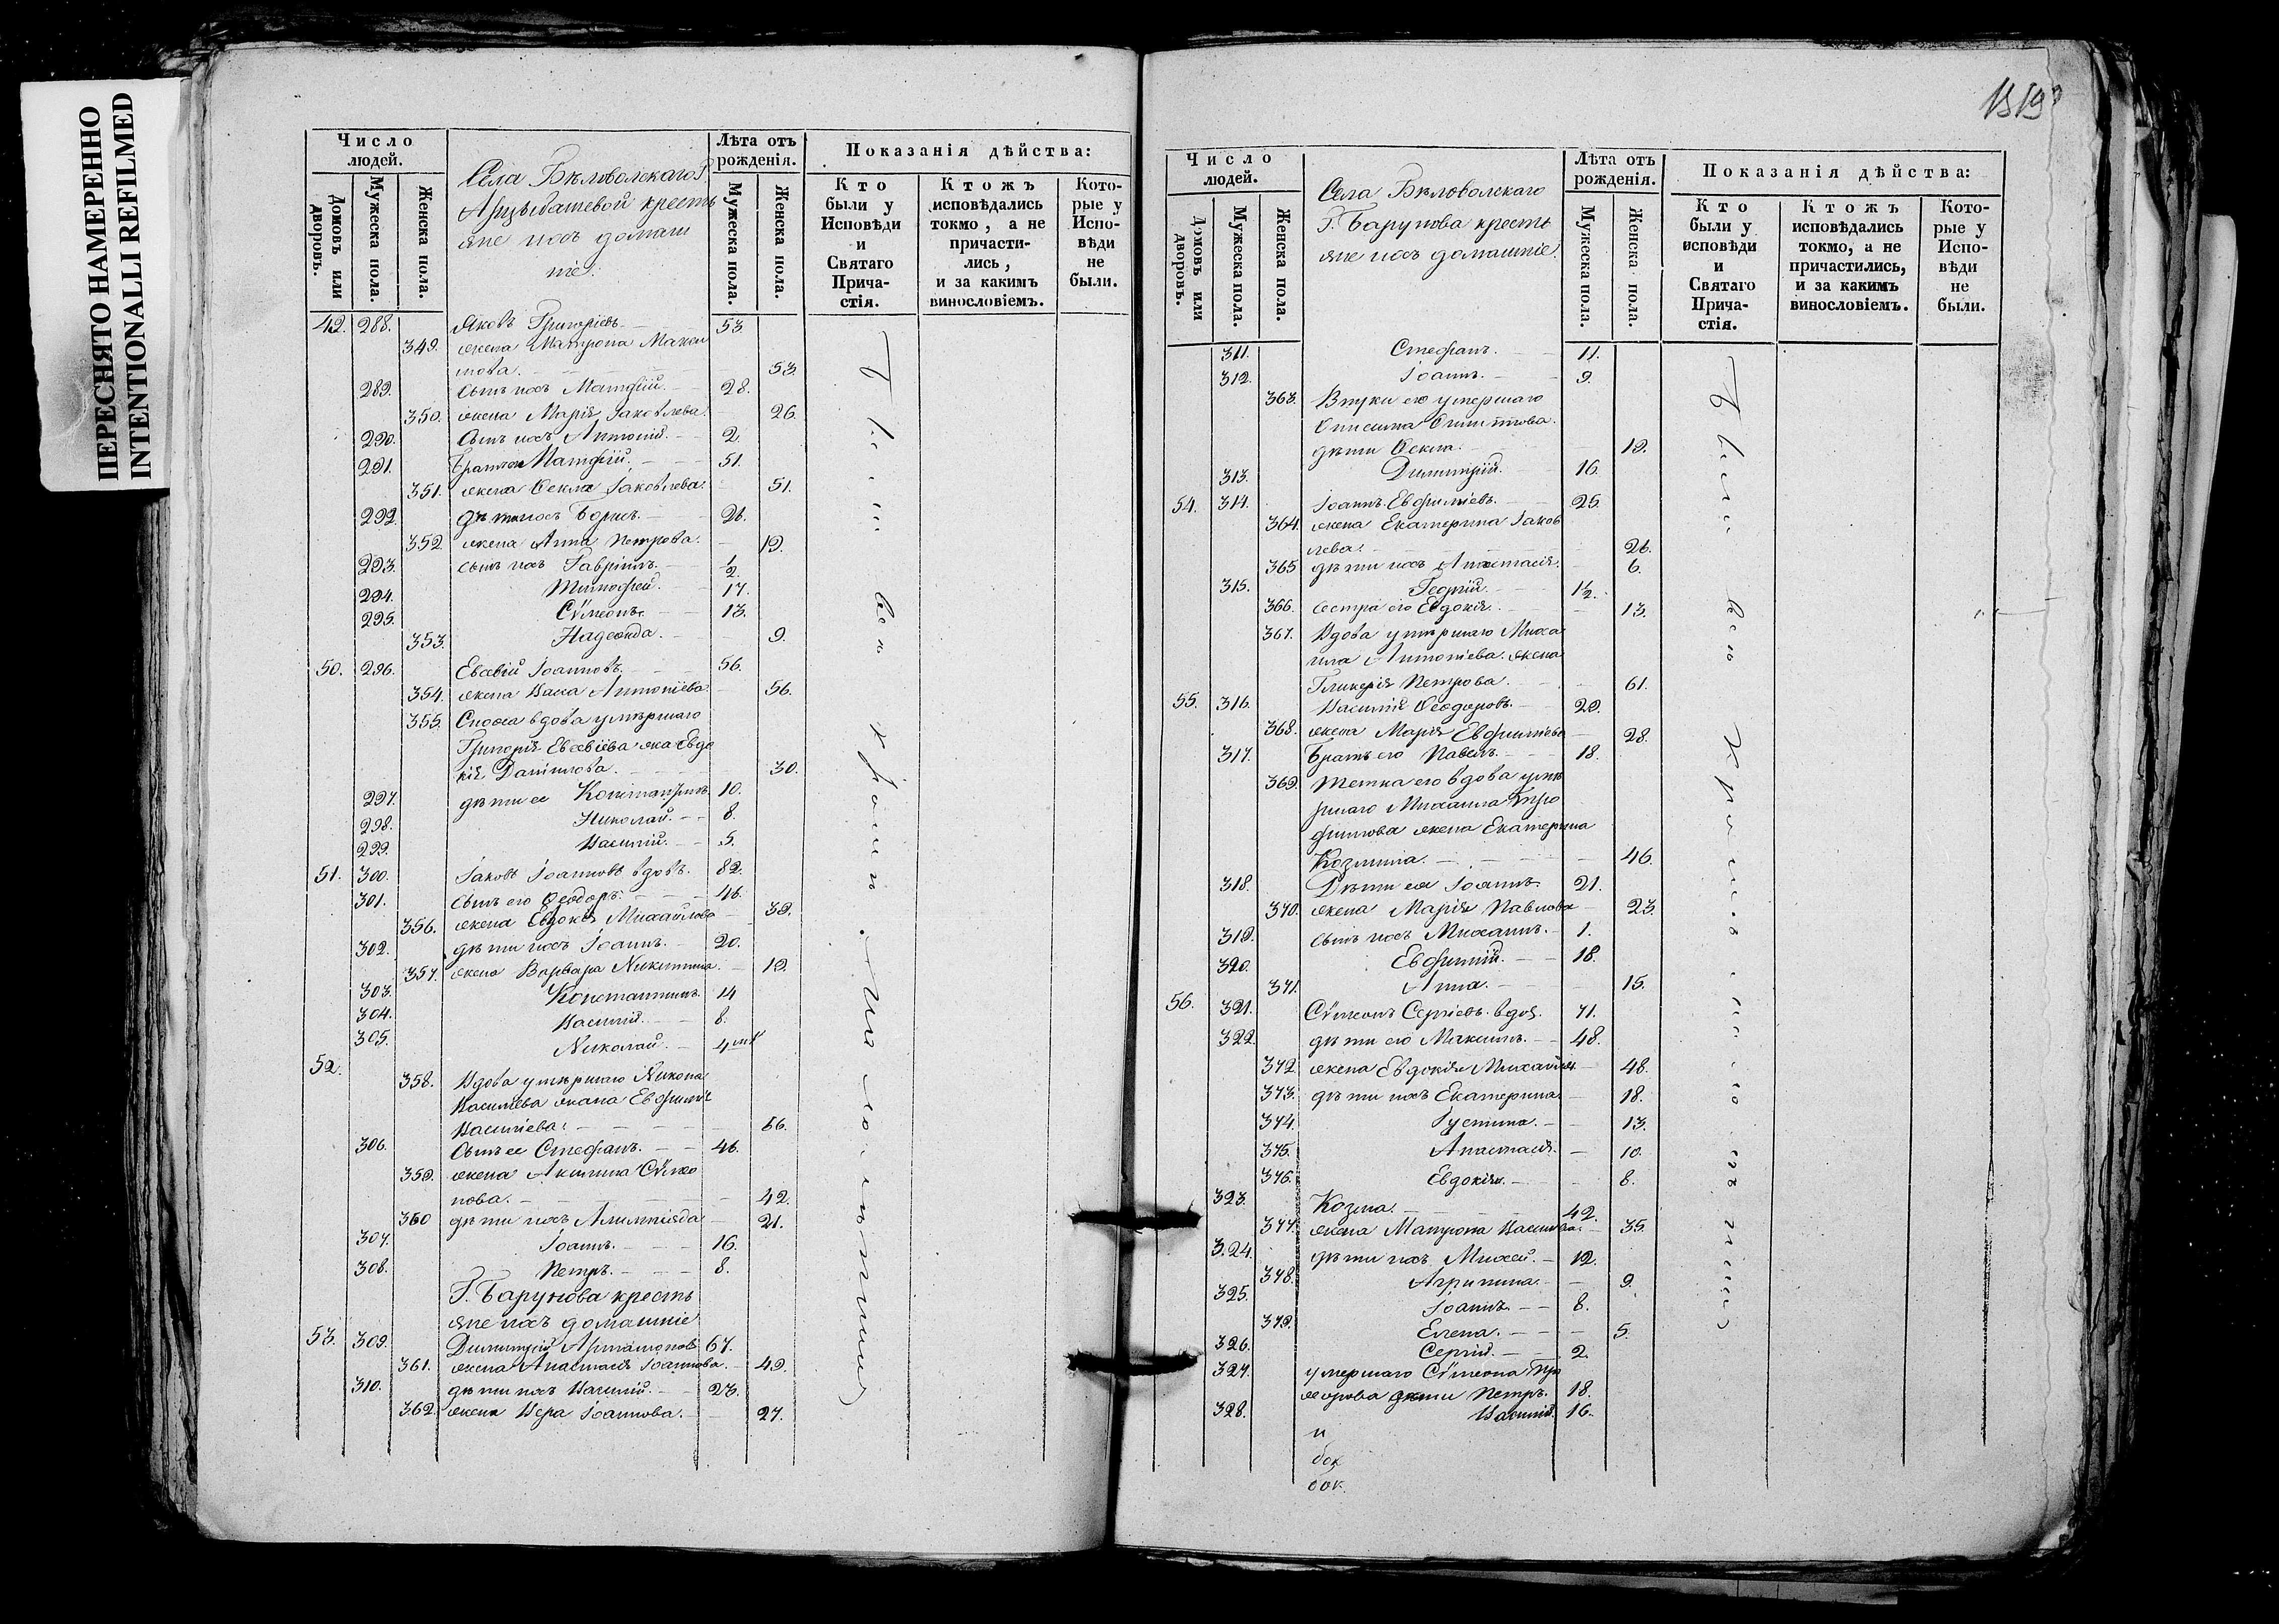 ПЕРЕСНЯТО НАМЕРЕННО
INTENTIONALLI REFILMED
Число людей.
Домовъ или дворовъ.
Мужеска пола.
Женска пола.
Села Бѣловолскаго Г.
Арцыбашевой кресть
яне ихъ домаш
ніе:
Лѣта отъ рожденія.
Мужеска пола.
Женска пола.
Показанія дѣйства:
Кто были у Исповѣди и Святаго Причастія.
Ктожъ исповѣдались токмо, а не причастились, и за какимъ винословіемъ.
Которые у Исповѣди не были.
49. 288. Яковъ Григоріевъ. 53
349. жена Матрона Макси
мова. 53.
289. Сынъ ихъ Матфій. 28.
350. жена Марія Іаковлева. 26.
290. Сынъ ихъ Антоній. 2.
291. Матфій. 51.
351. жена Фекла Іаковлева. 51.
292. дѣти ихъ Борисъ. 26.
352. жена Анна Петрова. 19.
293. сынъ ихъ Гавріилъ. 1/2.
294. Тимофей. 17.
295. Сѵмеонъ. 13.
353. Надежда. 9.
50. 296. Евсевій Іоанновъ. 56.
354. жена Васса Антоніева. 56.
355. Сноха вдова умѣршаго
Григорія Евсевіева жка Евдо
кія Даніилова. 30.
297. дѣти ее Константинъ. 10.
298. Николай. 8.
299. Василій. 5.
51. 300. Іаковъ Іоанновъ вдовъ. 82.
301. сынъ его Феодоръ. 46.
356. жена Евдокія Михайлова 39.
302. дѣти ихъ Іоаннъ. 20.
357. жена Варвара Никитина. 19.
303. Константинъ. 14
304. Василій. 8.
305. Николай. 4
52.
358. Вдова умѣршаго Никона
Василіева жена Евфимія
Василіева. 66.
306. Сынъ ее Стефанъ. 46.
359. жена Акилина Сѵмео
нова. 42.
360 дѣти ихъ Алимпіада 21.
307. Іоаннъ. 16.
308. Петръ. 8.
Г. Барунова кресть
яне ихъ домашніе
53. 309. Димитрій Артамоновъ 67.
361. жена Анастасія Іоаннова. 49.
310. дѣти ихъ Василій. 23.
362. жена Вера Іоаннова. 27.
Число людей.
Домовъ или дворовъ.
Мужеска пола.
Женска пола.
Села Бѣловолскаго
Г. Барунова кресть
яне ихъ домашніе.
Лѣта отъ рожденія.
Мужеска пола.
Женска пола.
Показанія дѣйства:
Кто были у исповѣди и Святаго Причастія.
Ктожъ исповѣдались токмо, а не причастились, и за какимъ винословіемъ.
Которые у Исповѣди не были.
311. Стефанъ. 11.
312. Іоаннъ. 9.
363. Внуки его умершаго
Онисима
дѣти Фекла. 19.
313. Димитрій. 16.
54. 314. Іоаннъ Евфиміевъ. 25.
364. жена Екатерина Іаков
лева. 26.
365 дѣти ихъ Анастасія. 6.
315. Георгій. 1½.
366. Сестра его Евдокія. 13.
367. Вдова умѣршаго Миха
ила Антоніева жена
Гликерія Петрова. 61.
55. 316. Василій Феодоровъ. 29.
368. жена Марія Евфиміева 28.
317. Братъ его Павелъ. 18.
369. Тетка его вдова умѣ
ршаго Михаила Тро
фимова жена Екатерина
Козмина. 46.
318. Дѣти ея Іоаннъ 21.
370. жена Марія Павлова 23.
319. сынъ ихъ Михаилъ. 1.
320. Евфимій. 18.
371. Анна. 15.
56. 321. Сѵмеонъ Сергіевъ вдов. 71.
322. дѣти его Максимъ. 48.
372 жена Евдокія Михайлов 48.
373. дѣти ихъ Екатерина. 18.
374. Іустина. 13.
375. Анастасія. 10.
376. Евдокія. 8.
323. Козма. 42.
377. жена Матрона Василіева. 35.
324. дѣти ихъ Михей. 12.
378. Агрипина. 9.
325. Іоаннъ. 8.
379. Елена. 5.
326. Сергій. 2.
327. умершаго Сѵмеона
дѣти Петръ. 18.
328. Василій. 16.